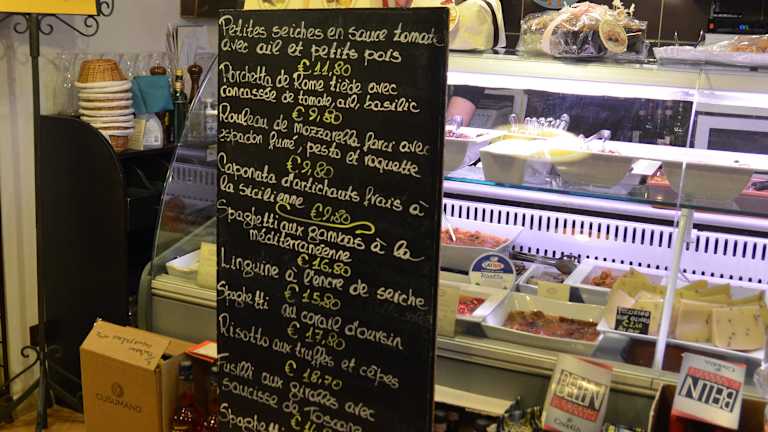 Petites seiches en sauce tomate
avec ail et petits pois
€ 11,80
Porchetta de Rome tiède avec
concassée de tomate, ail, basilic
€ 9,80
Rouleau de mozzarella farci avec
espadon fumé, pesto et roquette
€ 9,80
Caponata d'artichauts frais à
la sicilienne € 9,80
Spaghetti aux gambas à la
méditerranéenne
€ 16,80
Linguine à l'encre de seiche
€ 15,80
Spaghetti au corail d'oursin
€ 17,80
Risotto aux truffes et cêpes
€ 18,70
Fusilli aux girolles avec
saucisse de Toscane
Spaghetti
CUSUMANO
BELIN
BELIN